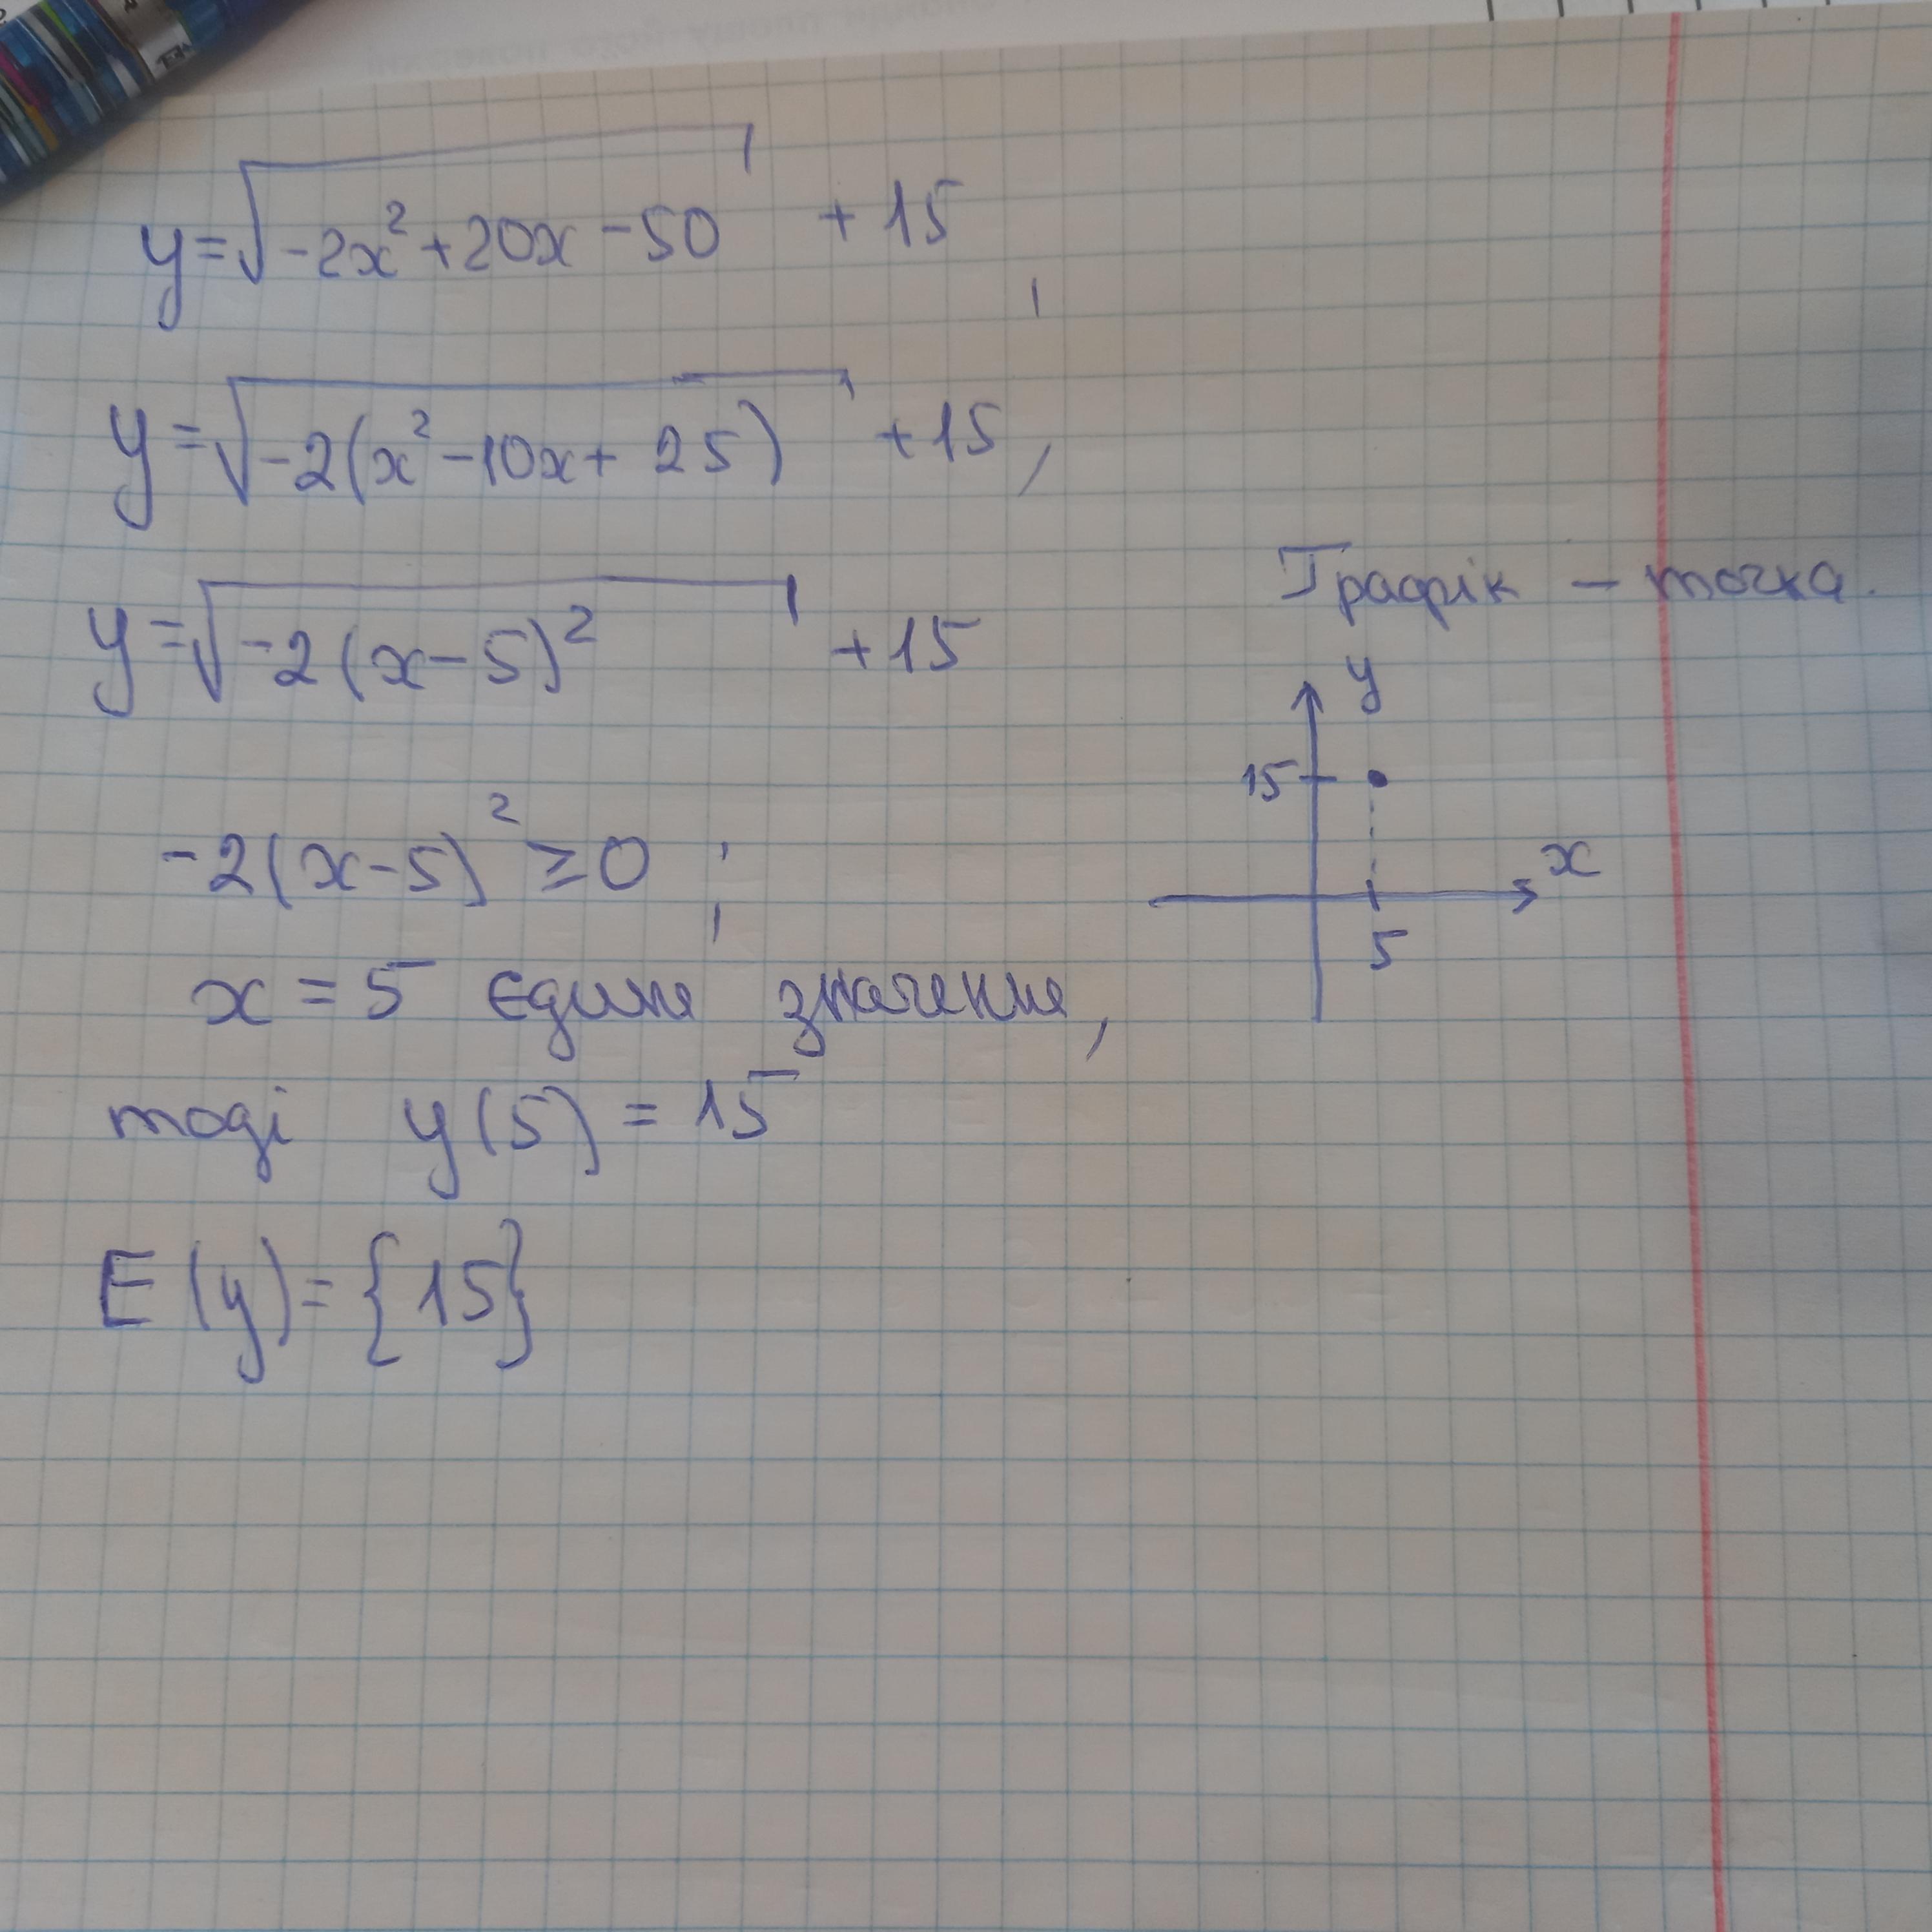 y=√(-2x²+20x-50) +15,
y=√(-2(x²-10x+25)) +15,
y=√(-2(x-5)²) +15
-2(x-5)² ≥0 ;
x = 5 єдине значення,
тоді y(5) = 15
E(y)={15}
Графік – точка.
y
15
x
5